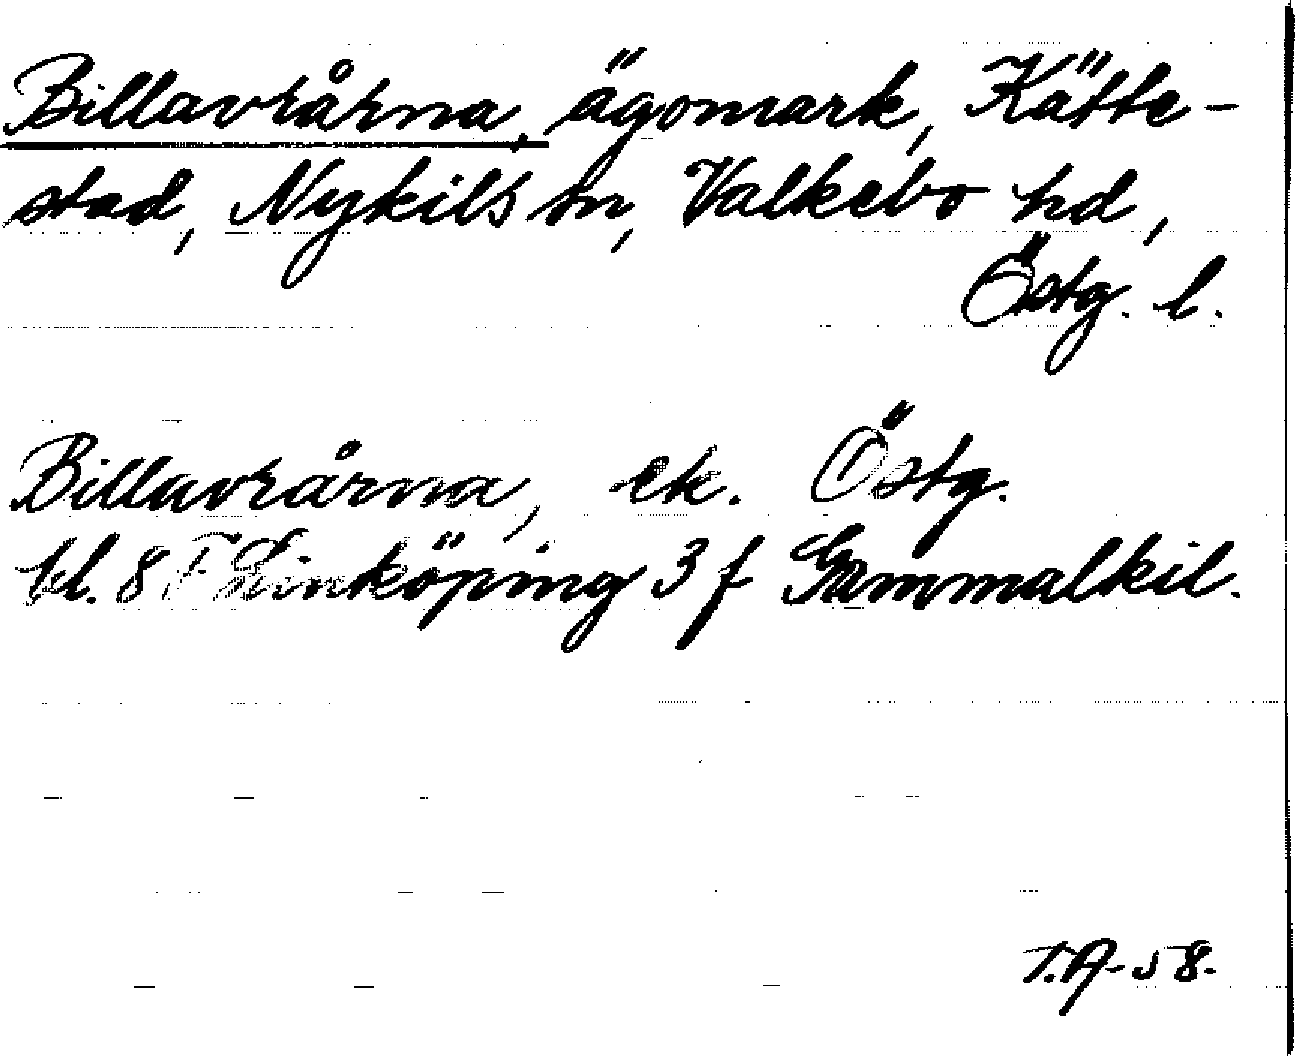 Billavråna, ägomark, Kätte-
stad, Nykils sn, Valkebo hd,
Östg. l.
Billavrårna, ek. Östg.
bl. 8 F Linköping 3 f Gammalkil.
T.A-58.